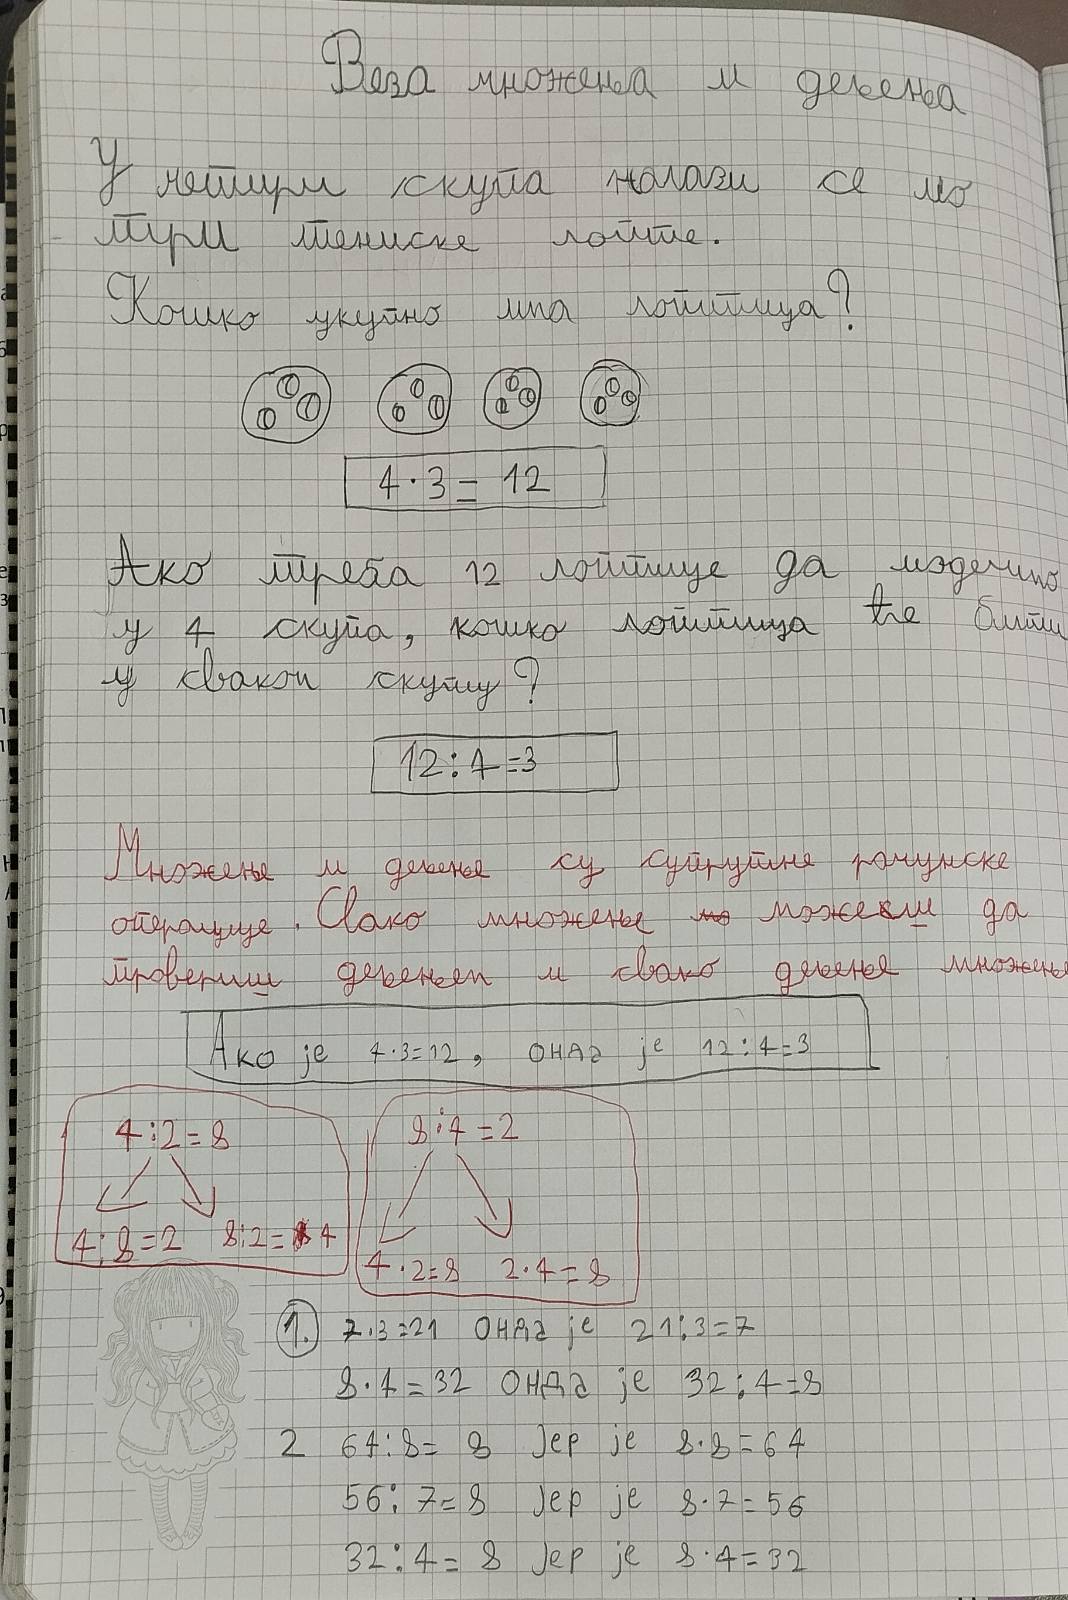 Веза множења и дељења
У четири скупа налази се по
три тениске лопте.
Колико укупно има лоптица?
4·3=12
Ако треба 12 лоптице да поделимо
у 4 скупа, колико лоптица ће бити
у сваком скупу?
12:4=3
Множење и дељење су супрутне рачунске
операције. Свако множење можеш да
провериш дељењем и свако дељење множење
Ако је 4·3=12, онда је 12:4=3
4:2=8 8:4=2
4:8=2 8:2=4 4·2=8 2·4=8
1. 7·3=21 онда је 21:3=7
8·4=32 онда је 32:4=8
2 64:8=8 Јер је 8·8=64
56:7=8 Јер је 8·7=56
32:4=8 Јер је 8·4=32